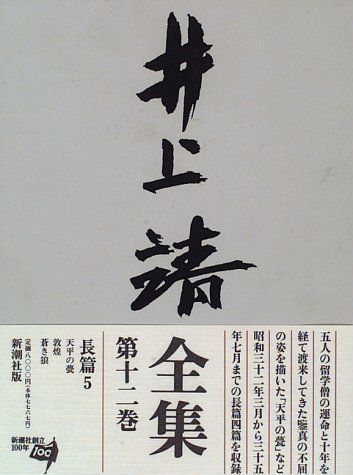 井上靖
五人の留学僧の運命と十年を
経て渡来してきた鑒真の不屈
の姿を描いた「天平の甍」など
昭和三十二年三月から三十五
年七月までの長篇四篇を収録
全集
第十二巻
長篇5
天平の甍
敦煌
蒼き狼
定価八〇〇〇円(本体七七六七円)
新潮社版
新潮社創立
100年
100